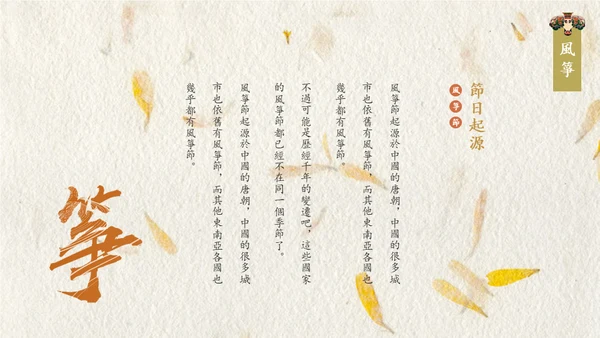 風箏
節日起源
風箏節
風箏節起源於中國的唐朝，中國的很多城
市也依舊有風箏節，而其他東南亞各國也
幾乎都有風箏節。
不過可能是歷經千年的變遷吧，這些國家
的風箏節都已經不在同一個季節了。
風箏節起源於中國的唐朝，中國的很多城
市也依舊有風箏節，而其他東南亞各國也
幾乎都有風箏節。
箏